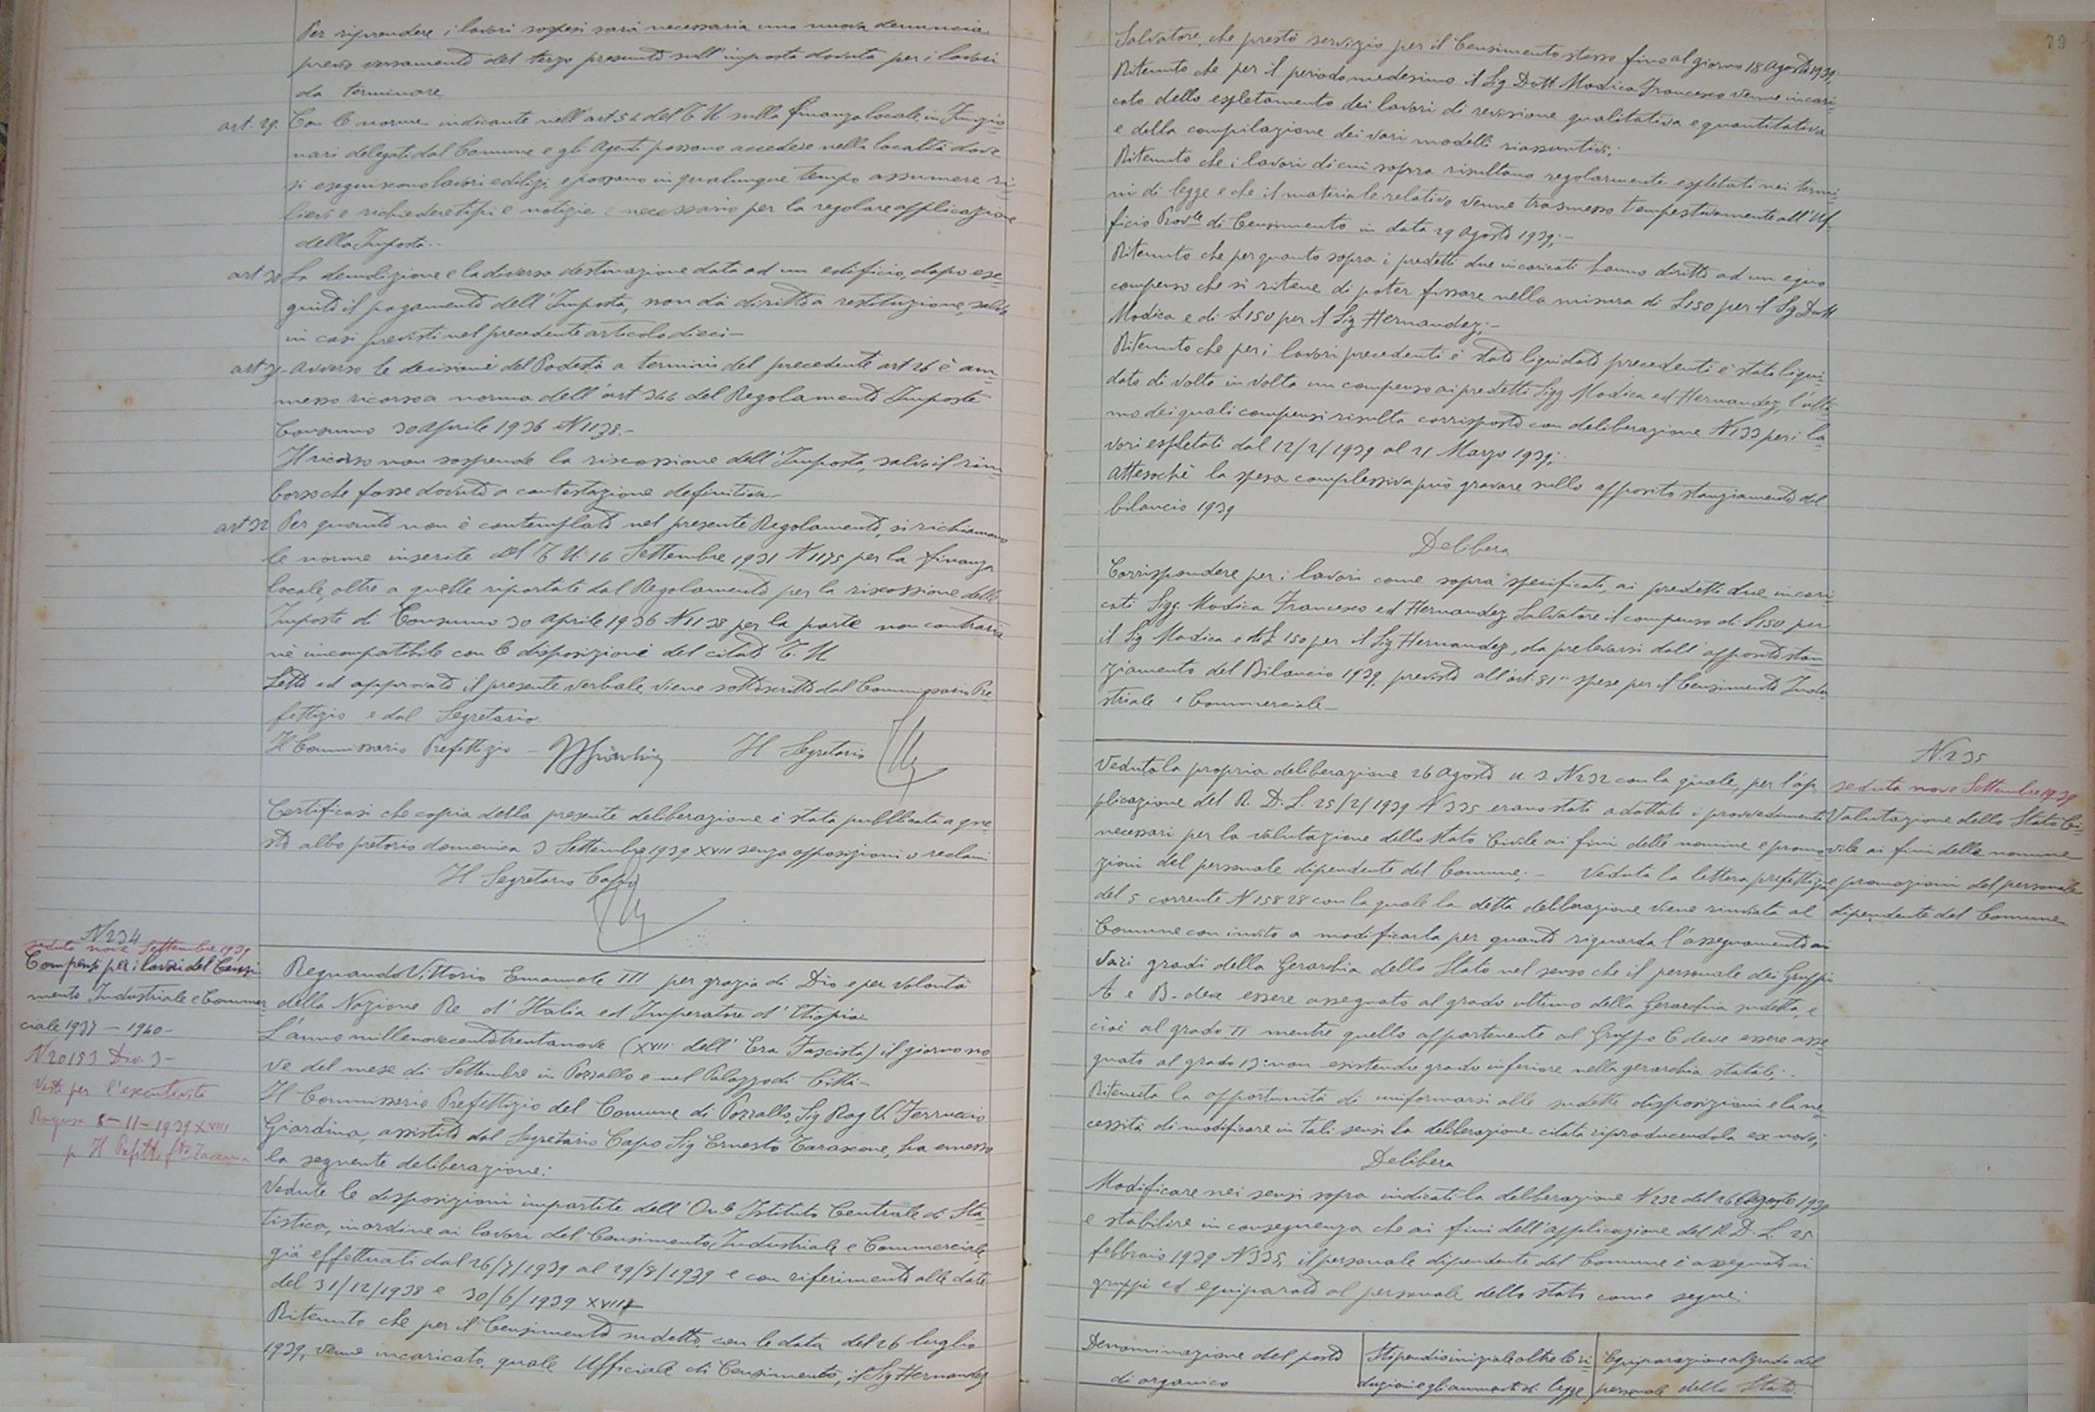 Per riprendere i lavori sospesi sarà necessaria una nuova denuncia
previo versamento del terzo presunto sull'imposta dovuta per i lavori
da terminare
art. 29. Con le norme indicate nell'art 54 del T U sulla finanza locale in Funzio=
nari delegati dal Comune e gli Agenti possono accedere nella località dove
si eseguiscono lavori edilizi, e possono in qualunque tempo assumere ri=
lievi e richiedere tipi e notizie necessario per la regolare applicazione
della Imposta..
art 30 La demolizione e la diversa destinazione data ad un edificio, dopo ese=
guito il pagamento dell'Imposta, non dà diritto a restituzione, salvo
in casi previsti nel precedente articolo dieci—
art 31- Avverso le decisioni del Podestà a termini del precedente art 26 è am=
messo ricorso a norma dell'art 366 del Regolamento Imposte
Consumo 30 Aprile 1936 N 1138.-
Il ricorso non sospende la riscossione dell'Imposta, salvo il rim=
borso che fosse dovuto a contestazione definitiva-
art 32 Per quanto non è contemplato nel presente Regolamento, si richiamano
le norme inserite del T U. 14 Settembre 1931 N 1175 per la finanza
locale, oltre a quelle riportate dal Regolamento per la riscossione delle
Imposte di Consumo 30 Aprile 1936 N 1138 per la parte non contraria
nè incompatibile con le disposizioni del citato T. U
Letto ed approvato il presente verbale viene sottoscritto dal Commissario Pre=
fettizio e dal Segretario.
Il Commissario Prefettizio – Il Segretario
Certificasi che copia della presente deliberazione è stata pubblicata a que=
sto albo pretorio domenica 3 Settembre 1939 XVII senza opposizioni o reclami
Il Segretario Capo
N 234
seduta nove Settembre 1939
Compenso per i lavori del Censi
mento Industriale e Commer
ciale 1937 – 1940-
N 20153 Div. 3-
Visto per l'esecutività
Ragusa 8-11-1939 XVIII
p Il Prefetto fto
Regnando Vittorio Emanuele III per grazia di Dio e per volontà
della Nazione Re d'Italia ed Imperatore d'Etiopia-
L'anno millenovecentotrentanove (XVII dell'Era Fascista) il giorno no
ve del mese di Settembre in Pozzallo e nel Palazzo di Città-
Il Commissario Prefettizio del Comune di Pozzallo, Sig Rag U Ferruccio
Giardina, assistito dal Segretario Capo Sig Ernesto Tarascone, ha emesso
la seguente deliberazione:
Vedute le disposizioni impartite dell'On Istituto Centrale di Sta=
tistica, in ordine ai lavori del Censimento Industriale e Commerciale,
già effettuati dal 26/7/1939 al 29/8/1939 e con riferimento alle date
del 31/12/1938 e 30/6/1939 XVII
Ritenuto che per il Censimento sudetto, con le data del 26 luglio
1939, venne incaricato, quale Ufficiale di Censimento, il Sig Hernandez
79
Salvatore, che prestò servizio per il Censimento stesso fino al giorno 18 Agosto 1939;
Ritenuto che per il periodo medesimo il Sig Dott Modica Francesco venne incari=
cato dello espletamento dei lavori di revisione qualitativa e quantitativa
e della compilazione dei vari modelli riassuntivi;
Ritenuto che i lavori di cui sopra risultano regolarmente espletati nei termi=
ni di legge e che il materiale relativo venne trasmesso tempestivamente all'Uf=
ficio Provle di Censimento in data 29 Agosto 1939;-
Ritenuto che per quanto sopra i predetti due incaricati hanno diritto ad un equo
compenso che si ritiene di poter fissare nella misura di £ 150 per il Sig Dott
Modica e di £ 150 per il Sig Hernandez;-
Ritenuto che per i lavori precedenti è stato liquidato precedenti è stato liqui=
dato di volta in volta un compenso ai predetti Sigg Modica ed Hernandez, l'ulti=
mo dei quali compensi risulta corrisposto con deliberazione N 133 per i la=
vori espletati dal 12/2/1939 al 21 Marzo 1939;
Attesochè la spesa complessiva può gravare sullo apposito stanziamento del
bilancio 1939
Delibera
Corrispondere per i lavori come sopra specificati, ai predetti due incari=
cati Sigg. Modica Francesco ed Hernandez Salvatore il compenso di £ 150 per
il Sig Modica e di £ 150 per il Sig Hernandez, da prelevarsi dall'apposito stan=
ziamento del Bilancio 1939, previsto all'art. 81 "spese per il Censimento Indu=
striale e Commerciale-
N. 235
seduta nove Settembre 1939
Valutazione dello Stato Ci=
vile ai fini delle nomine
e promozioni del personale
dipendente del Comune
Veduta la propria deliberazione 26 Agosto u s N 232 con la quale, per l'ap
plicazione del R. D. L. 25/2/1939 N 335 erano stati adottati i provvedimenti
necessari per la valutazione dello stato Civile ai fini delle nomine e promo=
zioni del personale dipendente del Comune;- Veduta la lettera prefettizia
del 5 corrente N 15828 con la quale la detta deliberazione viene rinviata al
Comune con invito a modificarla per quanto riguarda l'assegnamento ai
vari gradi della Gerarchia dello Stato nel senso che il personale dei Gruppi
A e B- deve essere assegnato al grado ultimo della Gerarchia sudetta, e
cioè al grado II mentre quello appartenente al Gruppo C deve essere asse=
gnato al grado 13° non esistendo grado inferiore nella gerarchia statale;-
Ritenuta la opportunità di uniformarsi alle sudette disposizioni e la ne=
cessità di modificare in tali sensi la deliberazione citata riproducendola ex novo;
Delibera
Modificare nei sensi sopra indicati la deliberazione N 232 del 26 Agosto 1939
e stabilire in conseguenza che ai fini dell'applicazione del R. D. L. 25
febbraio 1939 N 335, il personale dipendente del Comune è assegnato ai
gruppi ed equiparato al personale dello stato come segue:
Denominazione del posto di organico
Stipendio iniziale oltre le ri=
duzioni e gli aumenti di legge
Equiparazione al grado del
personale dello Stato.